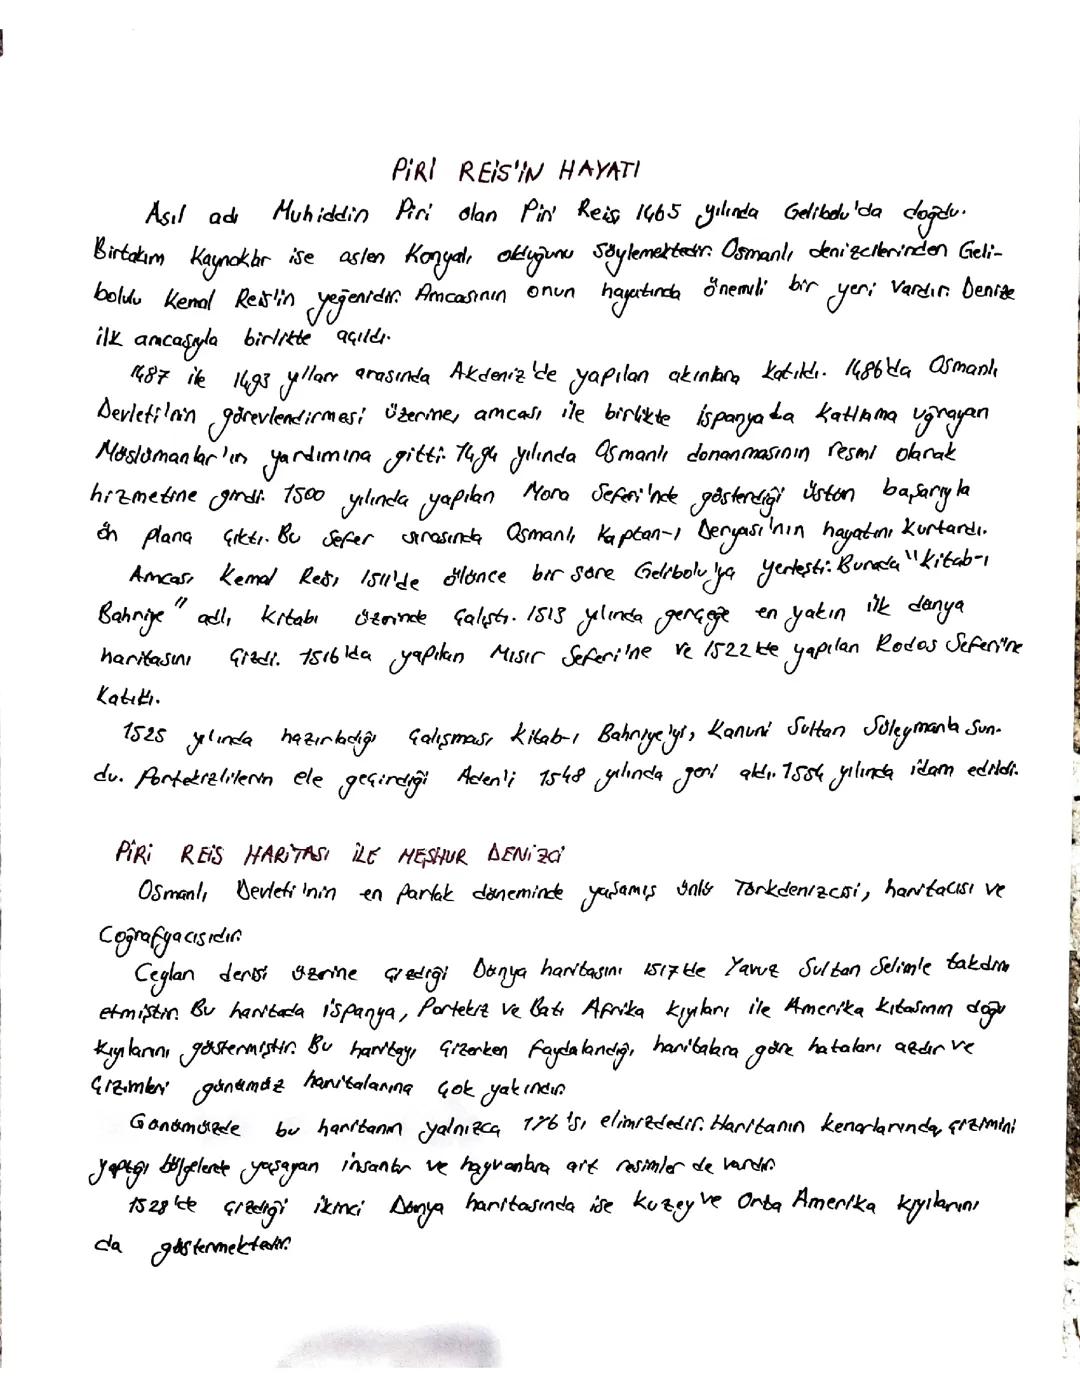 PİRİ REİS'İN HAYATI
Asıl adı Muhiddin Piri olan Piri Reis, 1465 yılında Gelibolu'da doğdu.
Birtakım Kaynaklar ise aslen Konyalı olduğunu söylemektedir. Osmanlı denizcilerinden Geli-
bolulu Kemal Reis'in yeğenidir. Amcasının onun hayatında önemli bir yeri vardır. Denize
ilk amcasıyla birlikte açıldı.
1487 ile 1493 yılları arasında Akdeniz'de yapılan akınlara katıldı. 1486'da Osmanlı
Devleti'nin görevlendirmesi üzerine, amcası ile birlikte İspanya'da katliama uğrayan
Müslümanlar'ın yardımına gitti. 1494 yılında Osmanlı donanmasının resmi olarak
hizmetine girdi. 1500 yılında yapılan Mora Seferi'nde gösterdiği üstün başarıyla
ön plana çıktı. Bu sefer sırasında Osmanlı Kaptan-ı Deryası'nın hayatını kurtardı.
Amcası Kemal Reis, 1511'de ölünce bir süre Gelibolu'ya yerleşti. Burada "Kitab-ı
Bahriye" adlı kitabı üzerinde çalıştı. 1513 yılında gerçeğe en yakın ilk dünya
haritasını çizdi. 1516'da yapılan Mısır Seferi'ne ve 1522'de yapılan Rodos Seferi'ne
Katıldı.
1525 yılında hazırladığı çalışması Kitab-ı Bahriye'yi, Kanuni Sultan Süleyman'a sun-
du. Portekizlilerin ele geçirdiği Aden'i 1548 yılında geri aldı. 1554 yılında idam edildi.
PİRİ REİS HARİTASI İLE MEŞHUR DENİZCİ
Osmanlı Devleti'nin en parlak döneminde yaşamış ünlü Türkdenizcisi, haritacısı ve
Coğrafyacısıdır.
Ceylan derisi üzerine çizdiği Dünya haritasını 1517'de Yavuz Sultan Selim'e takdim
etmiştir. Bu haritada İspanya, Portekiz ve Batı Afrika kıyıları ile Amerika kıtasının doğu
kıyılarını göstermiştir. Bu haritayı çizerken faydalandığı haritalara göre hataları azdır ve
çizimleri günümüz haritalarına çok yakındır.
Günümüzde bu haritanın yalnızca 1'i elimizdedir. Haritanın kenarlarında, çizimini
yaptığı bölgelerde yaşayan insanlar ve hayvanlara ait resimler de vardır.
1528'de çizdiği ikinci Dünya haritasında ise Kuzey ve Orta Amerika kıyılarını
da göstermektedir.